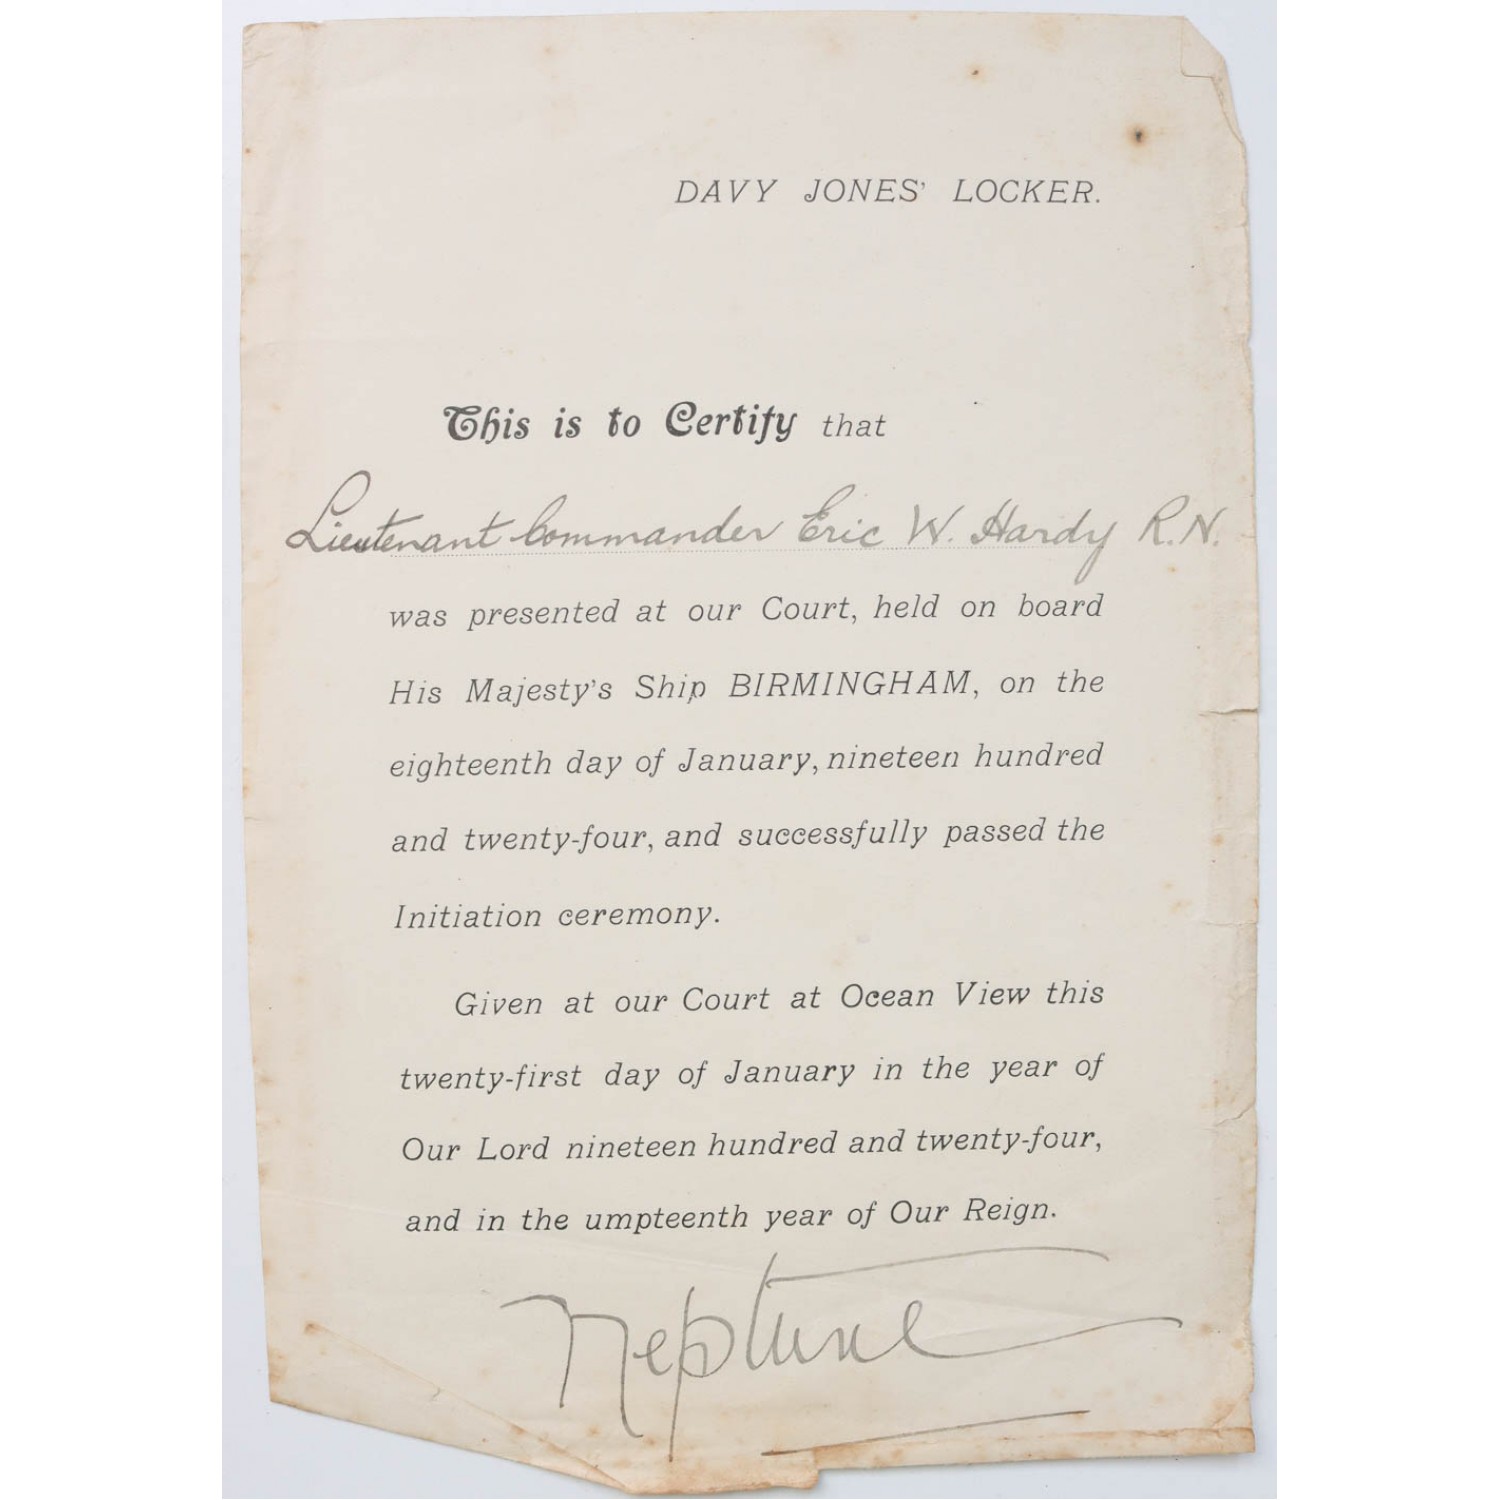 DAVY JONES' LOCKER.
This is to Certify that
Lieutenant Commander Eric W. Hardy R.N.
was presented at our Court, held on board
His Majesty's Ship BIRMINGHAM, on the
eighteenth day of January, nineteen hundred
and twenty-four, and successfully passed the
Initiation ceremony.
Given at our Court at Ocean View this
twenty-first day of January in the year of
Our Lord nineteen hundred and twenty-four,
and in the umpteenth year of Our Reign.
Neptune